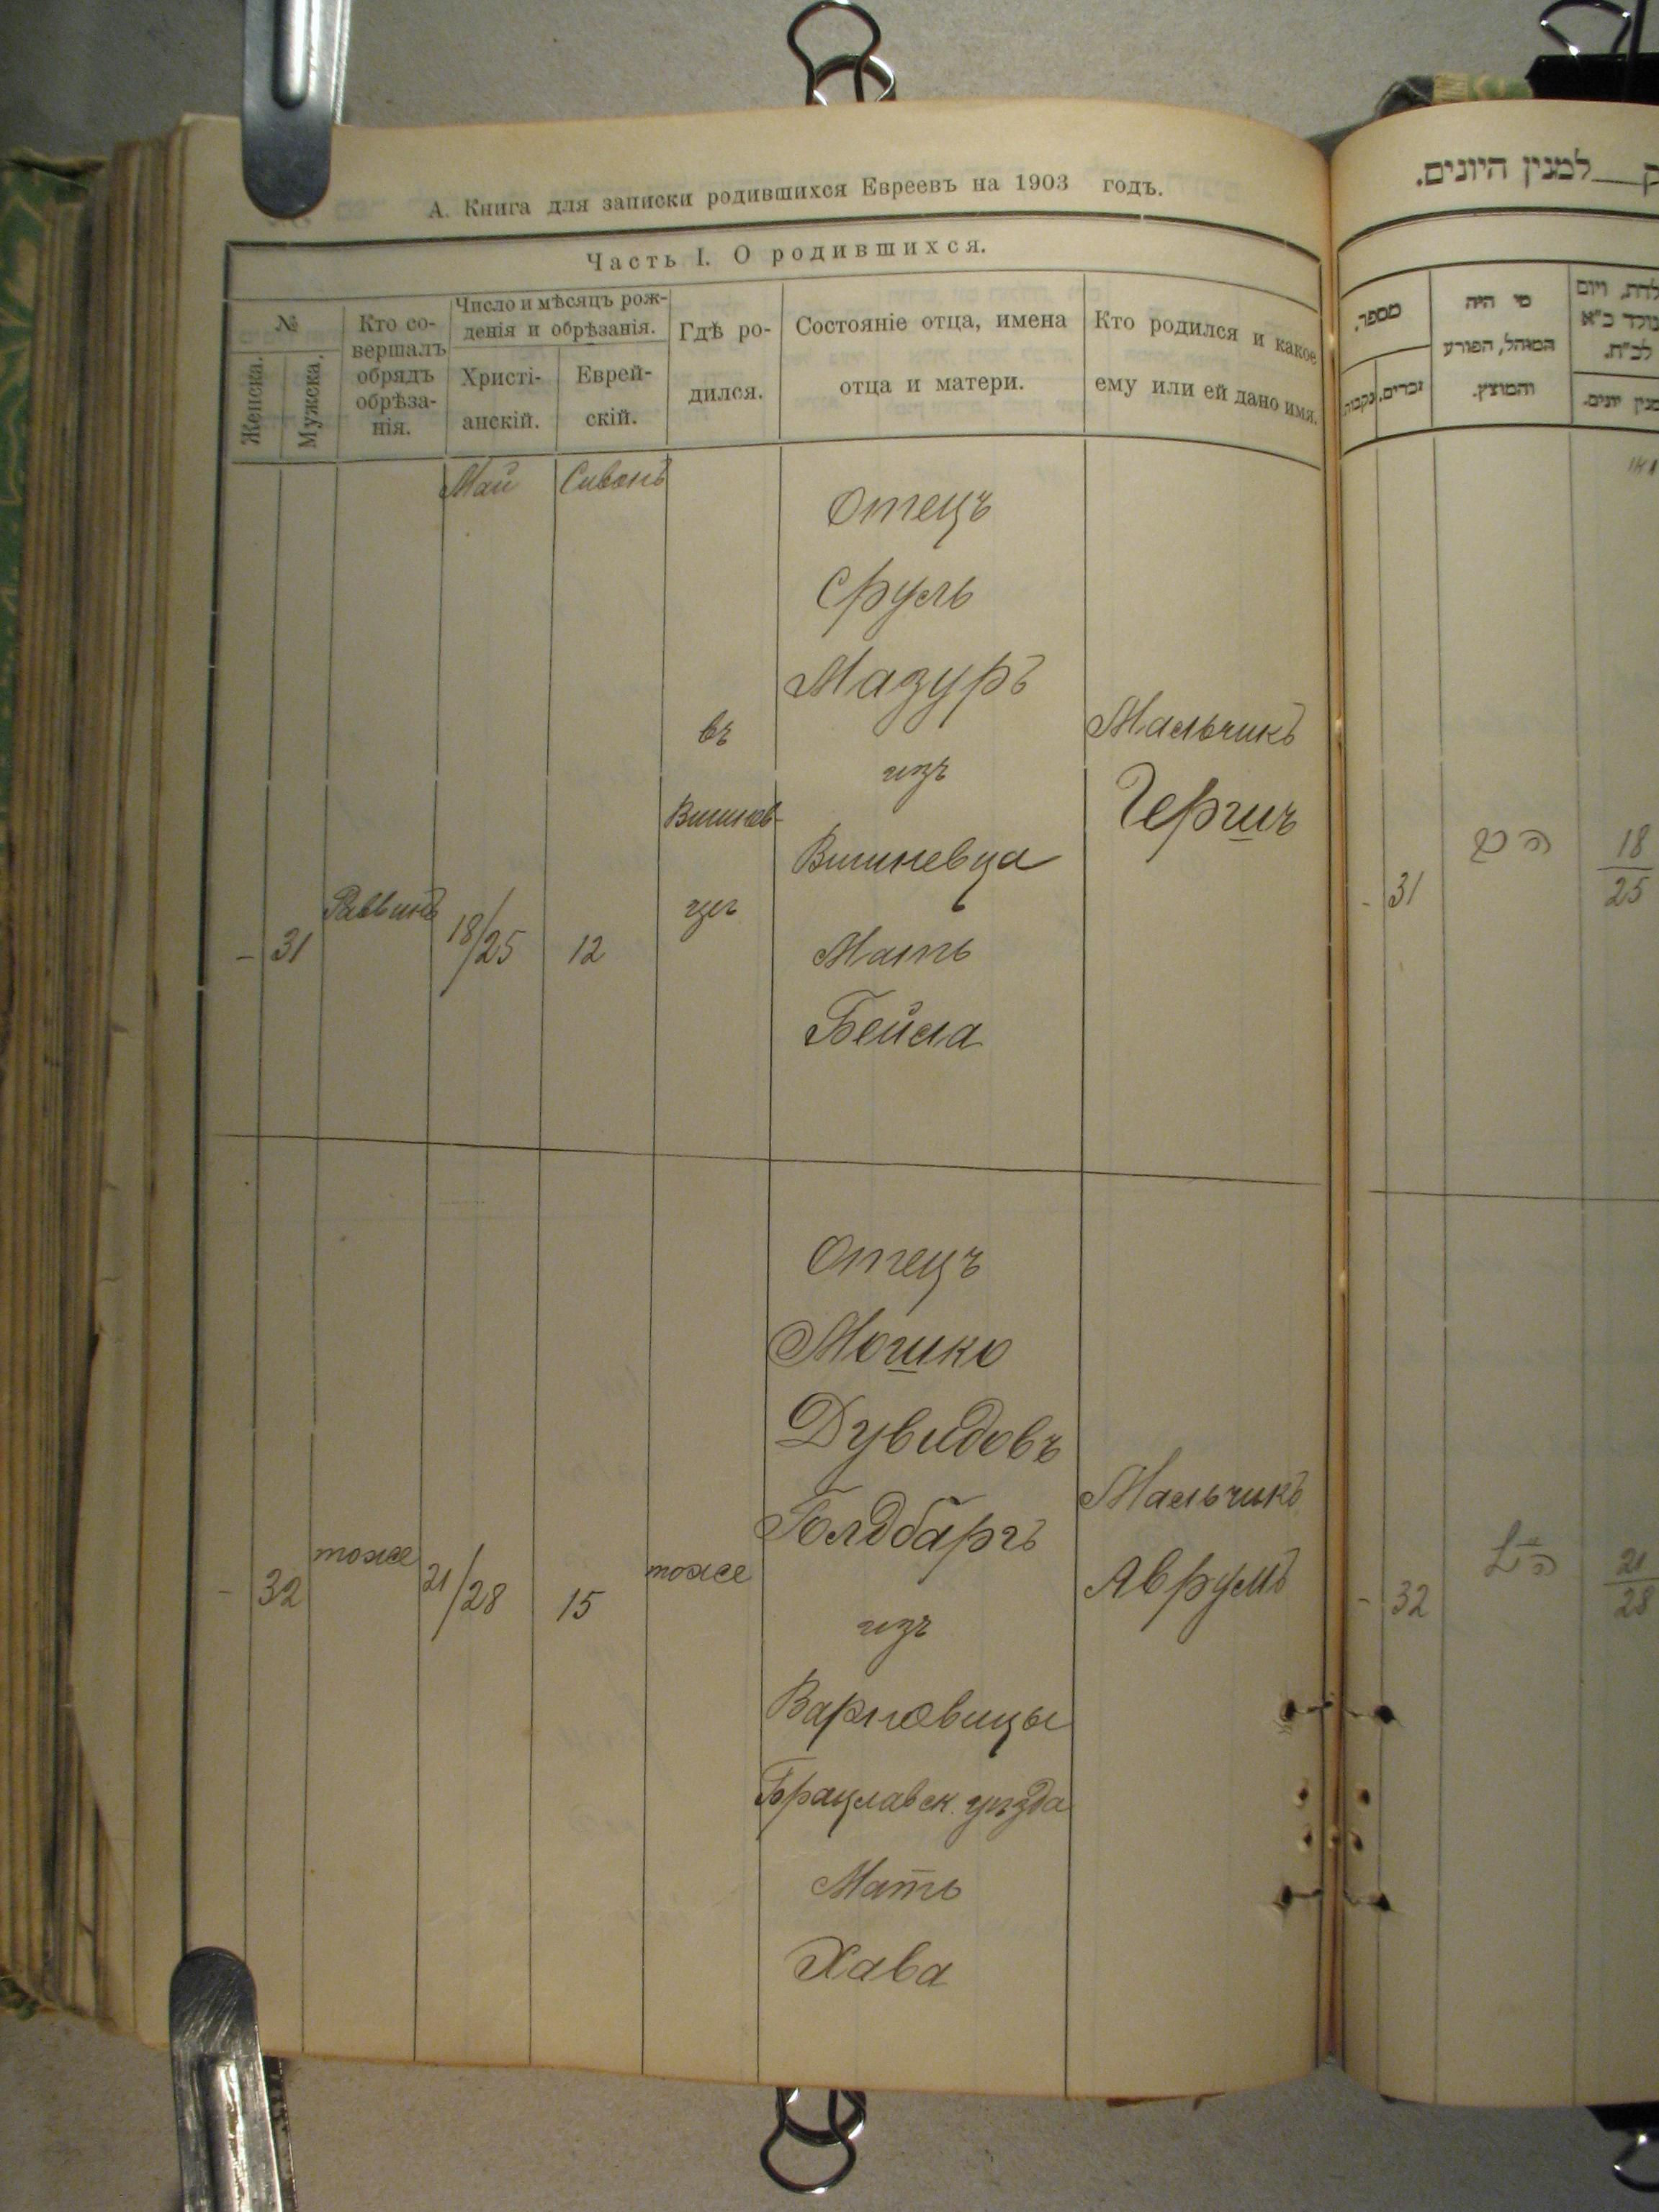 А. Книга для записки родившихся Евреевъ на 1903 годъ.
Часть I. О родившихся.
№
Женска.
Мужска.
Кто со-
вершалъ
обрядъ
обрѣза-
нія.
Число и мѣсяцъ рож-
денія и обрѣзанія.
Христі-
анскій.
Еврей-
скій.
Гдѣ ро-
дился.
Состояніе отца, имена
отца и матери.
Кто родился и какое
ему или ей дано имя.
Май
Сиванъ
– 31
Раввинъ
18/25
12
въ
Вишнев-
цѣ
Отецъ
Сруль
Мазуръ
изъ
Вишневца
Мать
Бейла
Мальчикъ
Гершъ
– 32
тоже
21/28
15
тоже
Отецъ
Мошко
Дувидовъ
Голдбаргъ
изъ
Варновицы
Брацлавск. уѣзда
Мать
Хава
Мальчикъ
Аврумъ
למנין היונים.
מספר.
נקבות.
זכרים.
מי היה
המוהל, הפורע
והמוצץ.
לדת, ויום
נולד כ"א
לב"ת.
מנין יונים.
- 31
18
25
- 32
21
28